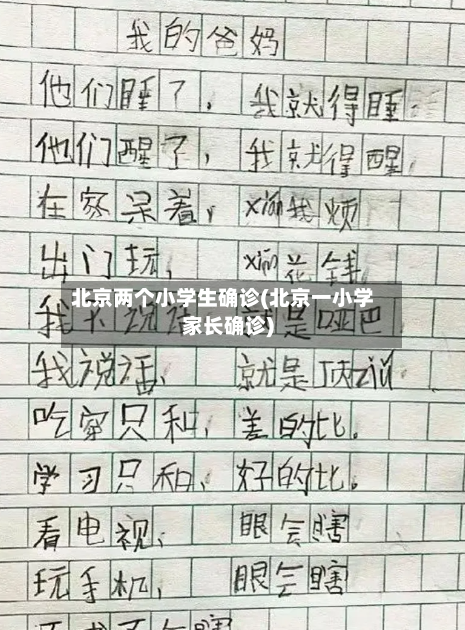 我的爸妈
他们睡了，我就得睡
他们醒了，我就得醒
在家呆着，xián我烦
出门玩，xián花钱
北京两个小学生确诊(北京一小学
家长确诊)
我不说话 就是哑巴
我说话，就是顶zuǐ
吃穿只和，差的比。
学习只和，好的比。
看电视，眼会瞎
玩手机，眼会瞎